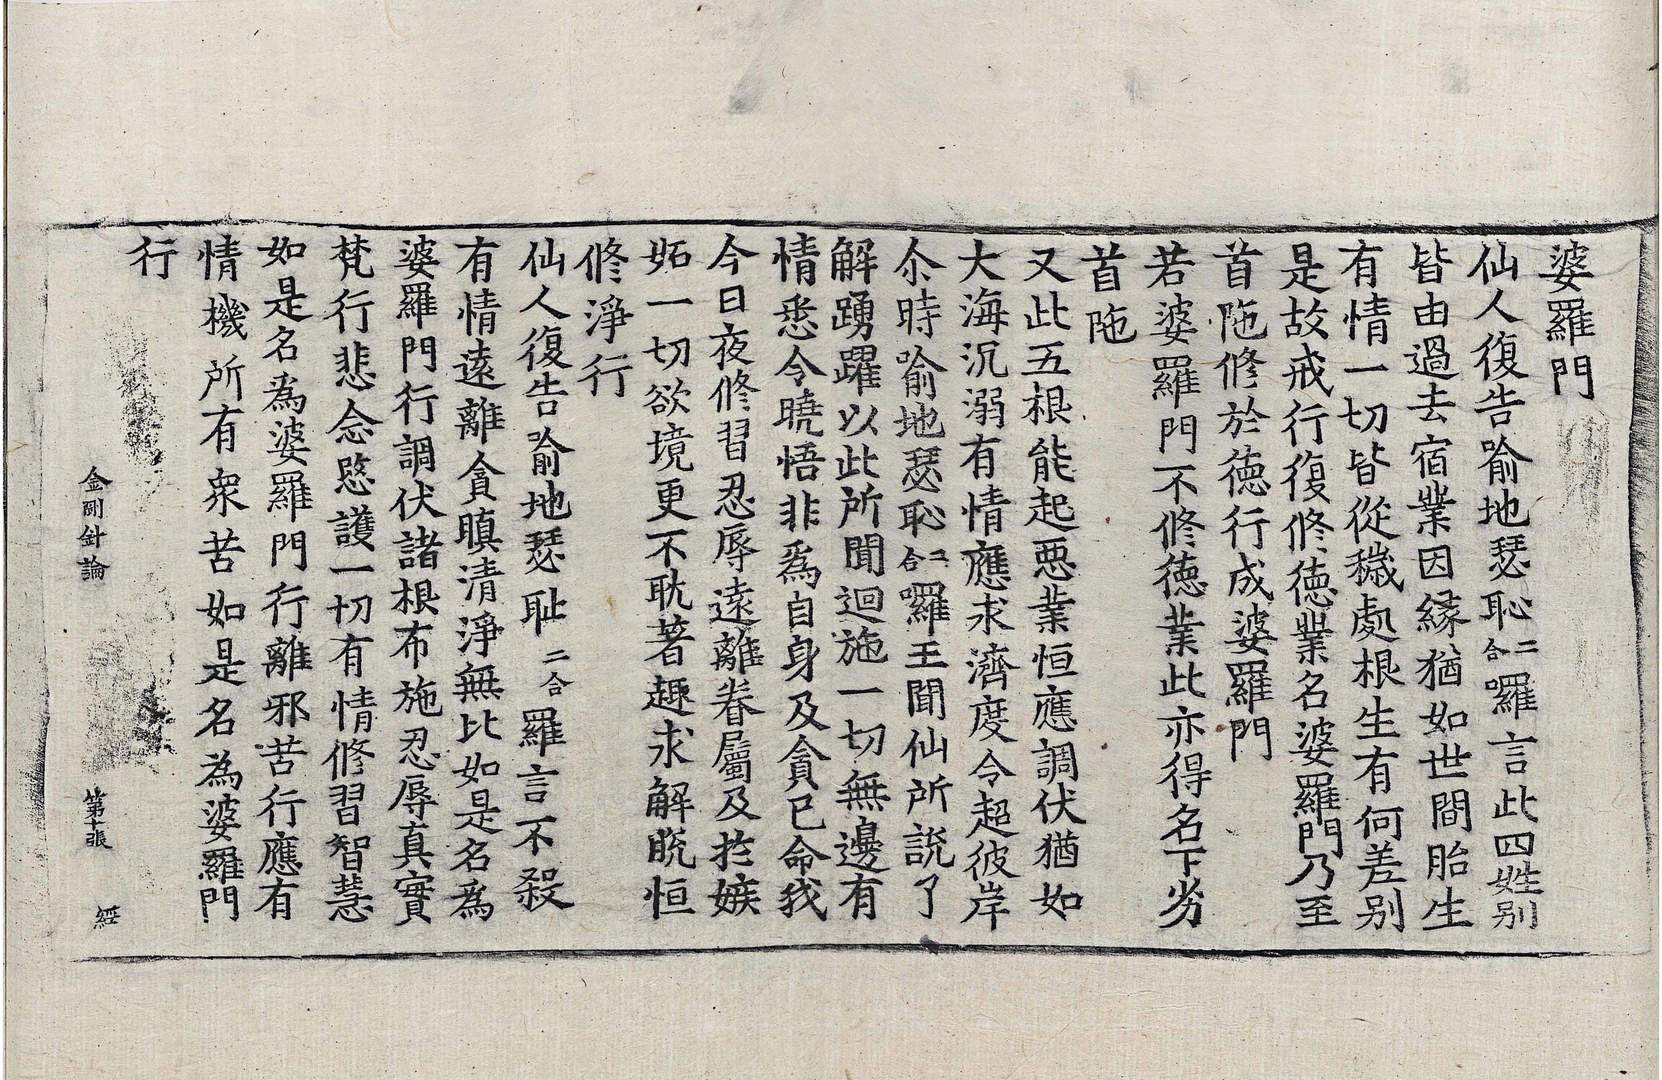 婆羅門
仙人復告喻地瑟恥二合囉言此四姓别
皆由過去宿業因緣猶如世間胎生
有情一切皆從穢處根生有何差别
是故戒行復修德業名婆羅門乃至
首陁修於德行成婆羅門
若婆羅門不修德業此亦得名下劣
首陁
又此五根能起惡業恒應調伏猶如
大海沉溺有情應求濟度令超彼岸
尒時喻地瑟恥二合囉王聞仙所說了
解踴躍以此所聞迴施一切無邊有
情悉令曉悟非為自身及貪已命我
今日夜修習忍辱遠離眷屬及扵嫉
妬一切欲境更不耽著趣求解脫恒
修淨行
仙人復告喻地瑟耻二合羅言不殺
有情遠離貪瞋清淨無比如是名為
婆羅門行調伏諸根布施忍辱真實
梵行悲念愍護一切有情修習智慧
如是名為婆羅門行離邪苦行應有
情機所有衆苦如是名為婆羅門
行
金剛針論 第十張 經